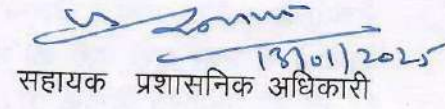 13/01/2025
सहायक प्रशासनिक अधिकारी